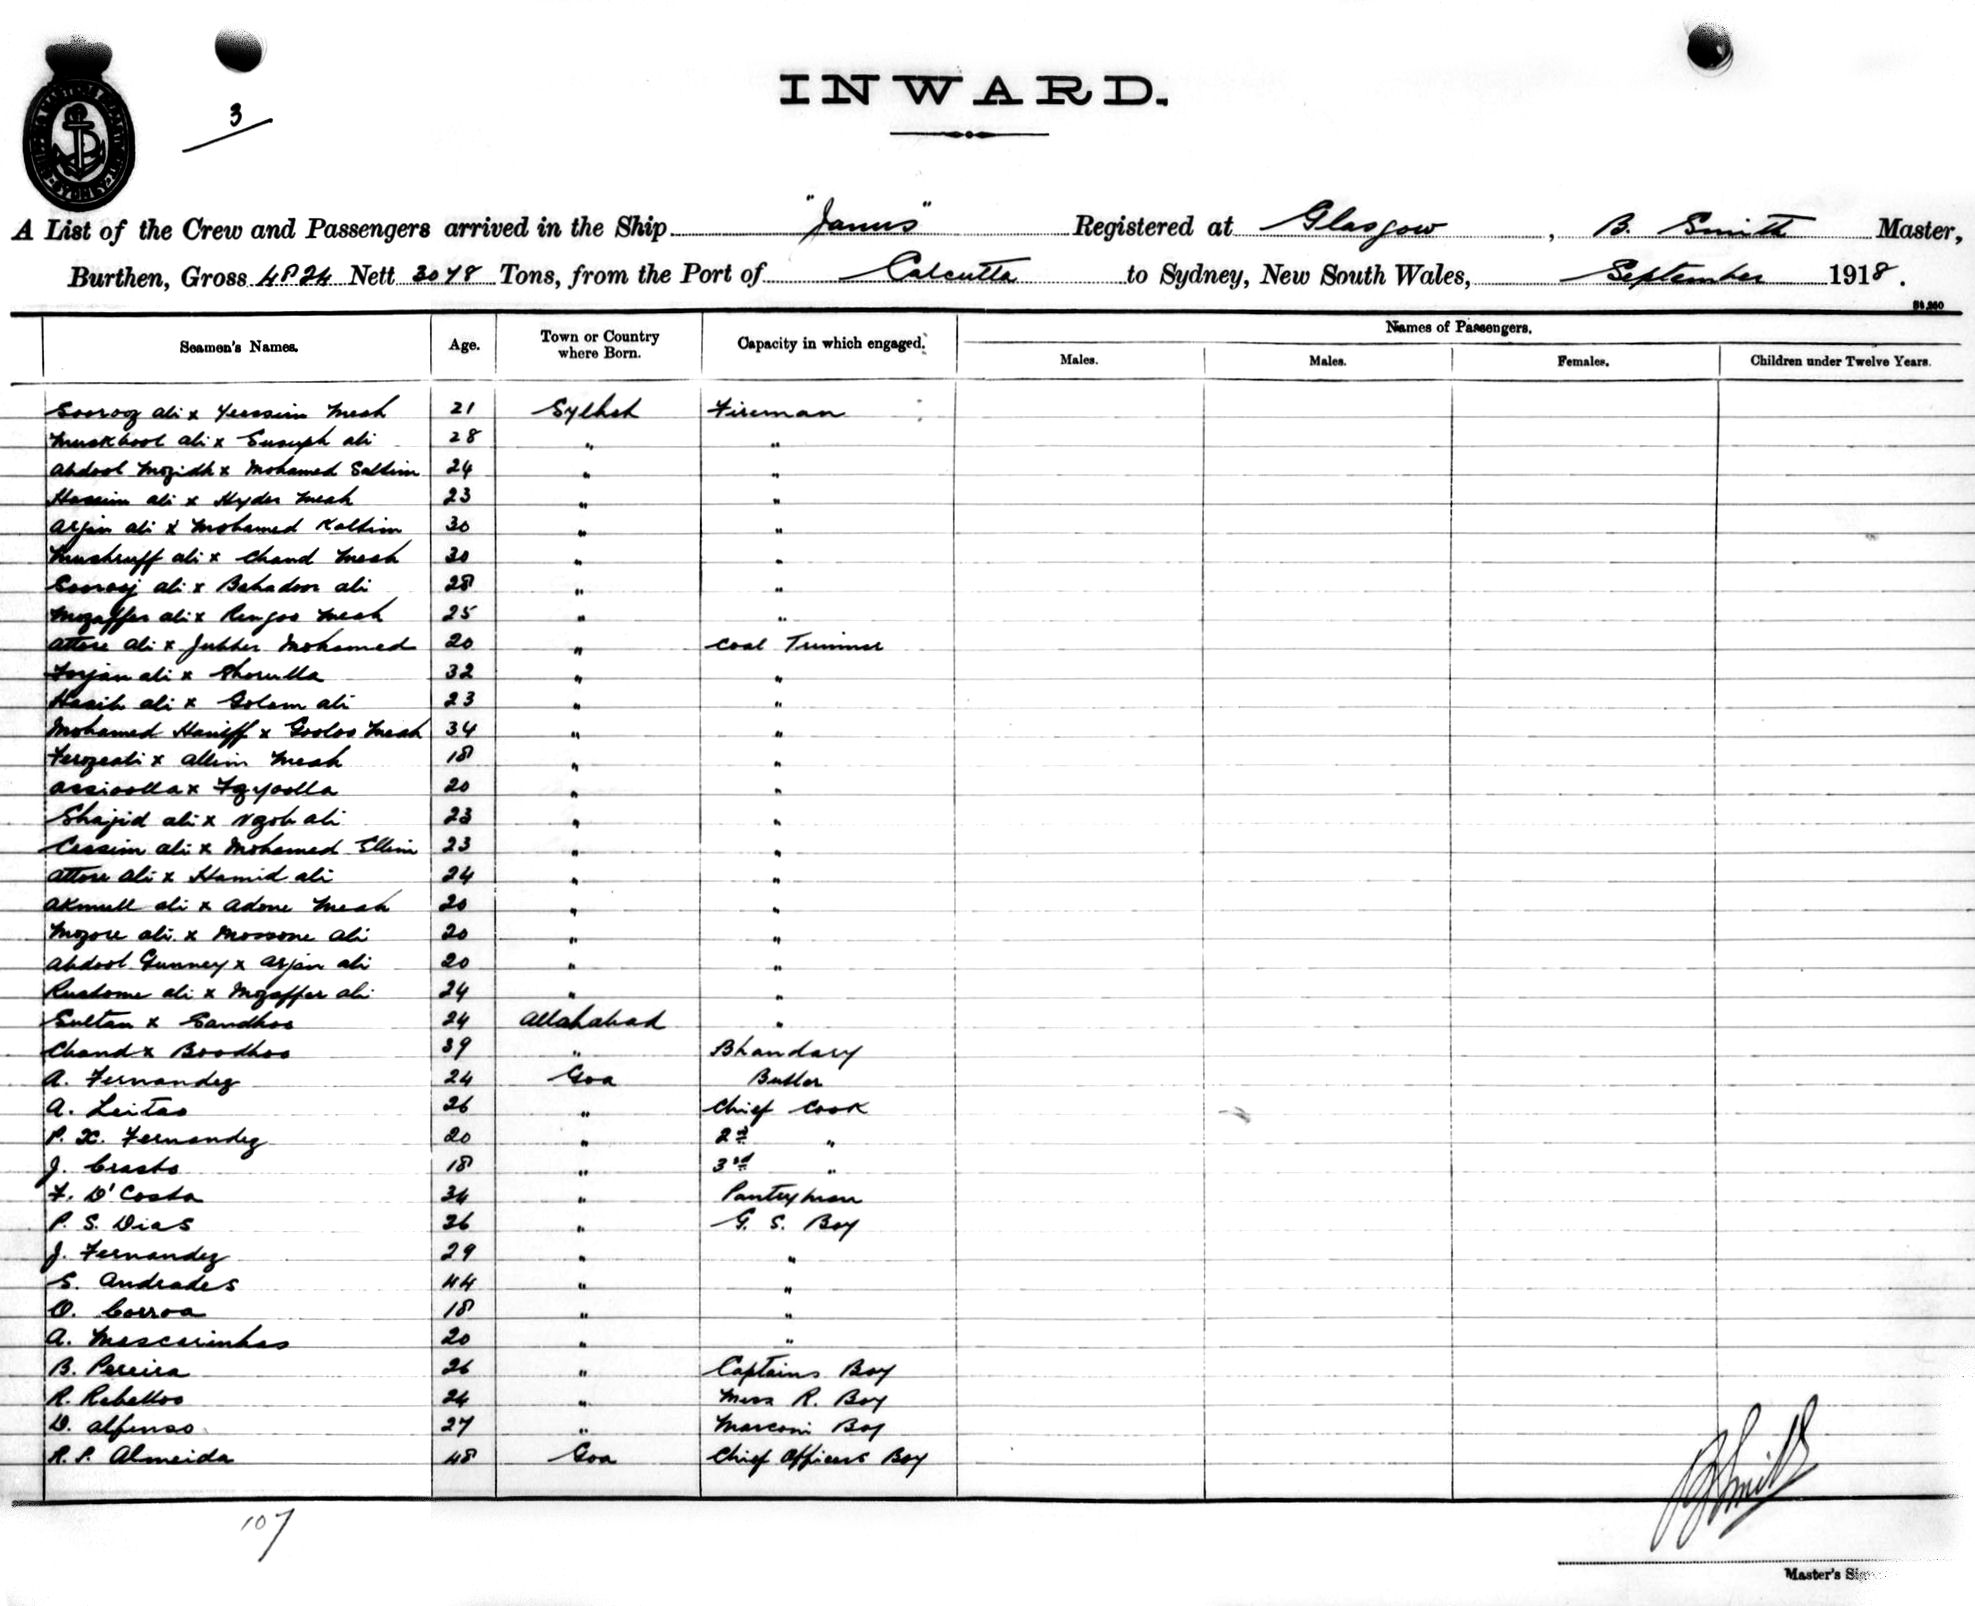 3
INWARD.
A List of the Crew and Passengers arrived in the Ship "Janus" Registered at Glasgow, B. Smith Master,
Burthen, Gross 4824 Nett 3048 Tons, from the Port of Calcutta to Sydney, New South Wales, September 1918.
Names of Passengers.
Seamen's Names. Age. Town or Country where Born. Capacity in which engaged. Males. Males. Females. Children under Twelve Years.
Sooroq ali x Yeassin Meah 21 Sylhet Fireman
Muskbool ali x Eusuph ali 28 " "
Abdool Mozidh x Mohamed Saldim 24 " "
Hassim ali x Hyder Meah 23 " "
Arjan ali x Mohamed Kaldim 30 " "
Mushruff ali x Chand Meah 30 " "
Soorooj ali x Bahadoor ali 28 " "
Mozaffer ali x Rengoo Meah 25 " "
Attore ali x Jubber Mohamed 20 " Coal Trimmer
Torjan ali x Shorulla 32 " "
Hasib ali x Golam ali 23 " "
Mohamed Haniff x Gooloo Meah 34 " "
Ferozeali x Allim Meah 18 " "
Assioolla x Fayoolla 20 " "
Shajid ali x ali 23 " "
Cassim ali x Mohamed Ellim 23 " "
Attore Ali x Hamid ali 24 " "
Akmull ali x Adone Meah 20 " "
Mozore ali x Mossone Ali 20 " "
Abdool Gunney x Arjan ali 20 " "
Rustome ali x Mozaffer ali 24 " "
Sultan x Sandhoo 24 Allahabad "
Chand x Boodhoo 39 " Bhandary
A. Fernandez 24 Goa Butler
A. Leitao 26 " Chief Cook
P. X. Fernandez 20 " 2nd "
J. Crasto 18 " 3rd "
F. D'Costa 34 " Pantryman
P. S. Dias 26 " G. S. Boy
J. Fernandez 29 " "
S. Andrades 44 " "
O. Corroa 18 " "
A. Mascarinhas 20 " "
B. Pereira 26 " Captains Boy
R. Rebellos 24 " Mess R. Boy
D. Alfonso 27 " Marconi Boy
R. P. Almeida 48 Goa Chief Officers Boy
107
B Smith
Master's